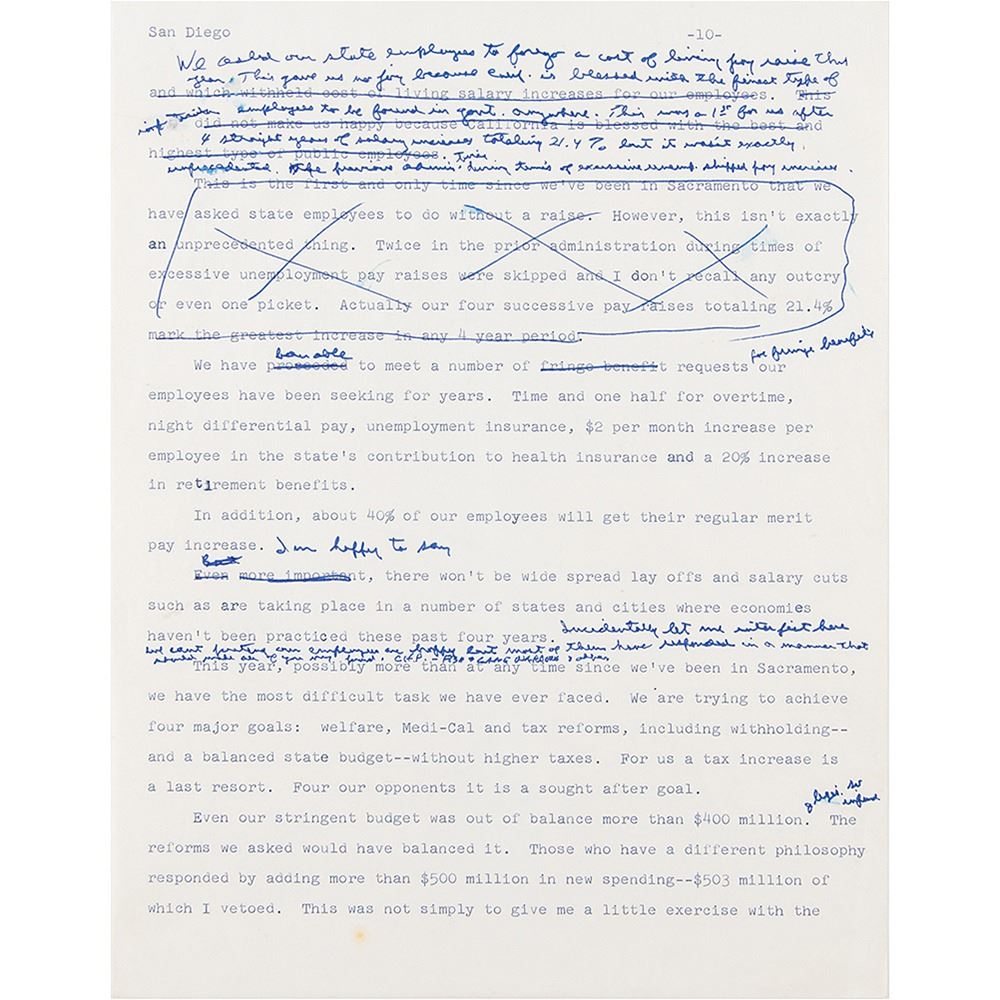 San Diego -10-
We asked our state employees to forego a cost of living pay raise this
year. This gave us no joy because Calif. is blessed with the finest type of
and which withheld cost of living salary increases for our employees. This
employees to be found in govt. anywhere. This was a 1st for us after
did not make us happy because California is blessed with the best and
4 straight years of salary increases totaling 21.4% but it wasn't exactly
highest type of public employees. Twice
unprecedented. The previous admin. during times of excessive unemp. skipped pay increases.
This is the first and only time since we've been in Sacramento that we
have asked state employees to do without a raise. However, this isn't exactly
an unprecedented thing. Twice in the prior administration during times of
excessive unemployment pay raises were skipped and I don't recall any outcry
or even one picket. Actually our four successive pay raises totaling 21.4%
mark the greatest increase in any 4 year period.
been able for fringe benefits
We have proceeded to meet a number of fringe benefit requests our
employees have been seeking for years. Time and one half for overtime,
night differential pay, unemployment insurance, $2 per month increase per
employee in the state's contribution to health insurance and a 20% increase
in retirement benefits.
In addition, about 40% of our employees will get their regular merit
pay increase. I'm happy to say
But
Even more important, there won't be wide spread lay offs and salary cuts
such as are taking place in a number of states and cities where economies
haven't been practiced these past four years. Incidentally let me interject here
we can't pretend our employees are happy but most of them have responded in a manner that
would make all of you very proud. C.H.P. -
This year, possibly more than at any time since we've been in Sacramento,
we have the most difficult task we have ever faced. We are trying to achieve
four major goals: welfare, Medi-Cal and tax reforms, including withholding--
and a balanced state budget--without higher taxes. For us a tax increase is
a last resort. Four our opponents it is a sought after goal.
Even our stringent budget was out of balance more than $400 million. The
reforms we asked would have balanced it. Those who have a different philosophy
responded by adding more than $500 million in new spending--$503 million of
which I vetoed. This was not simply to give me a little exercise with the